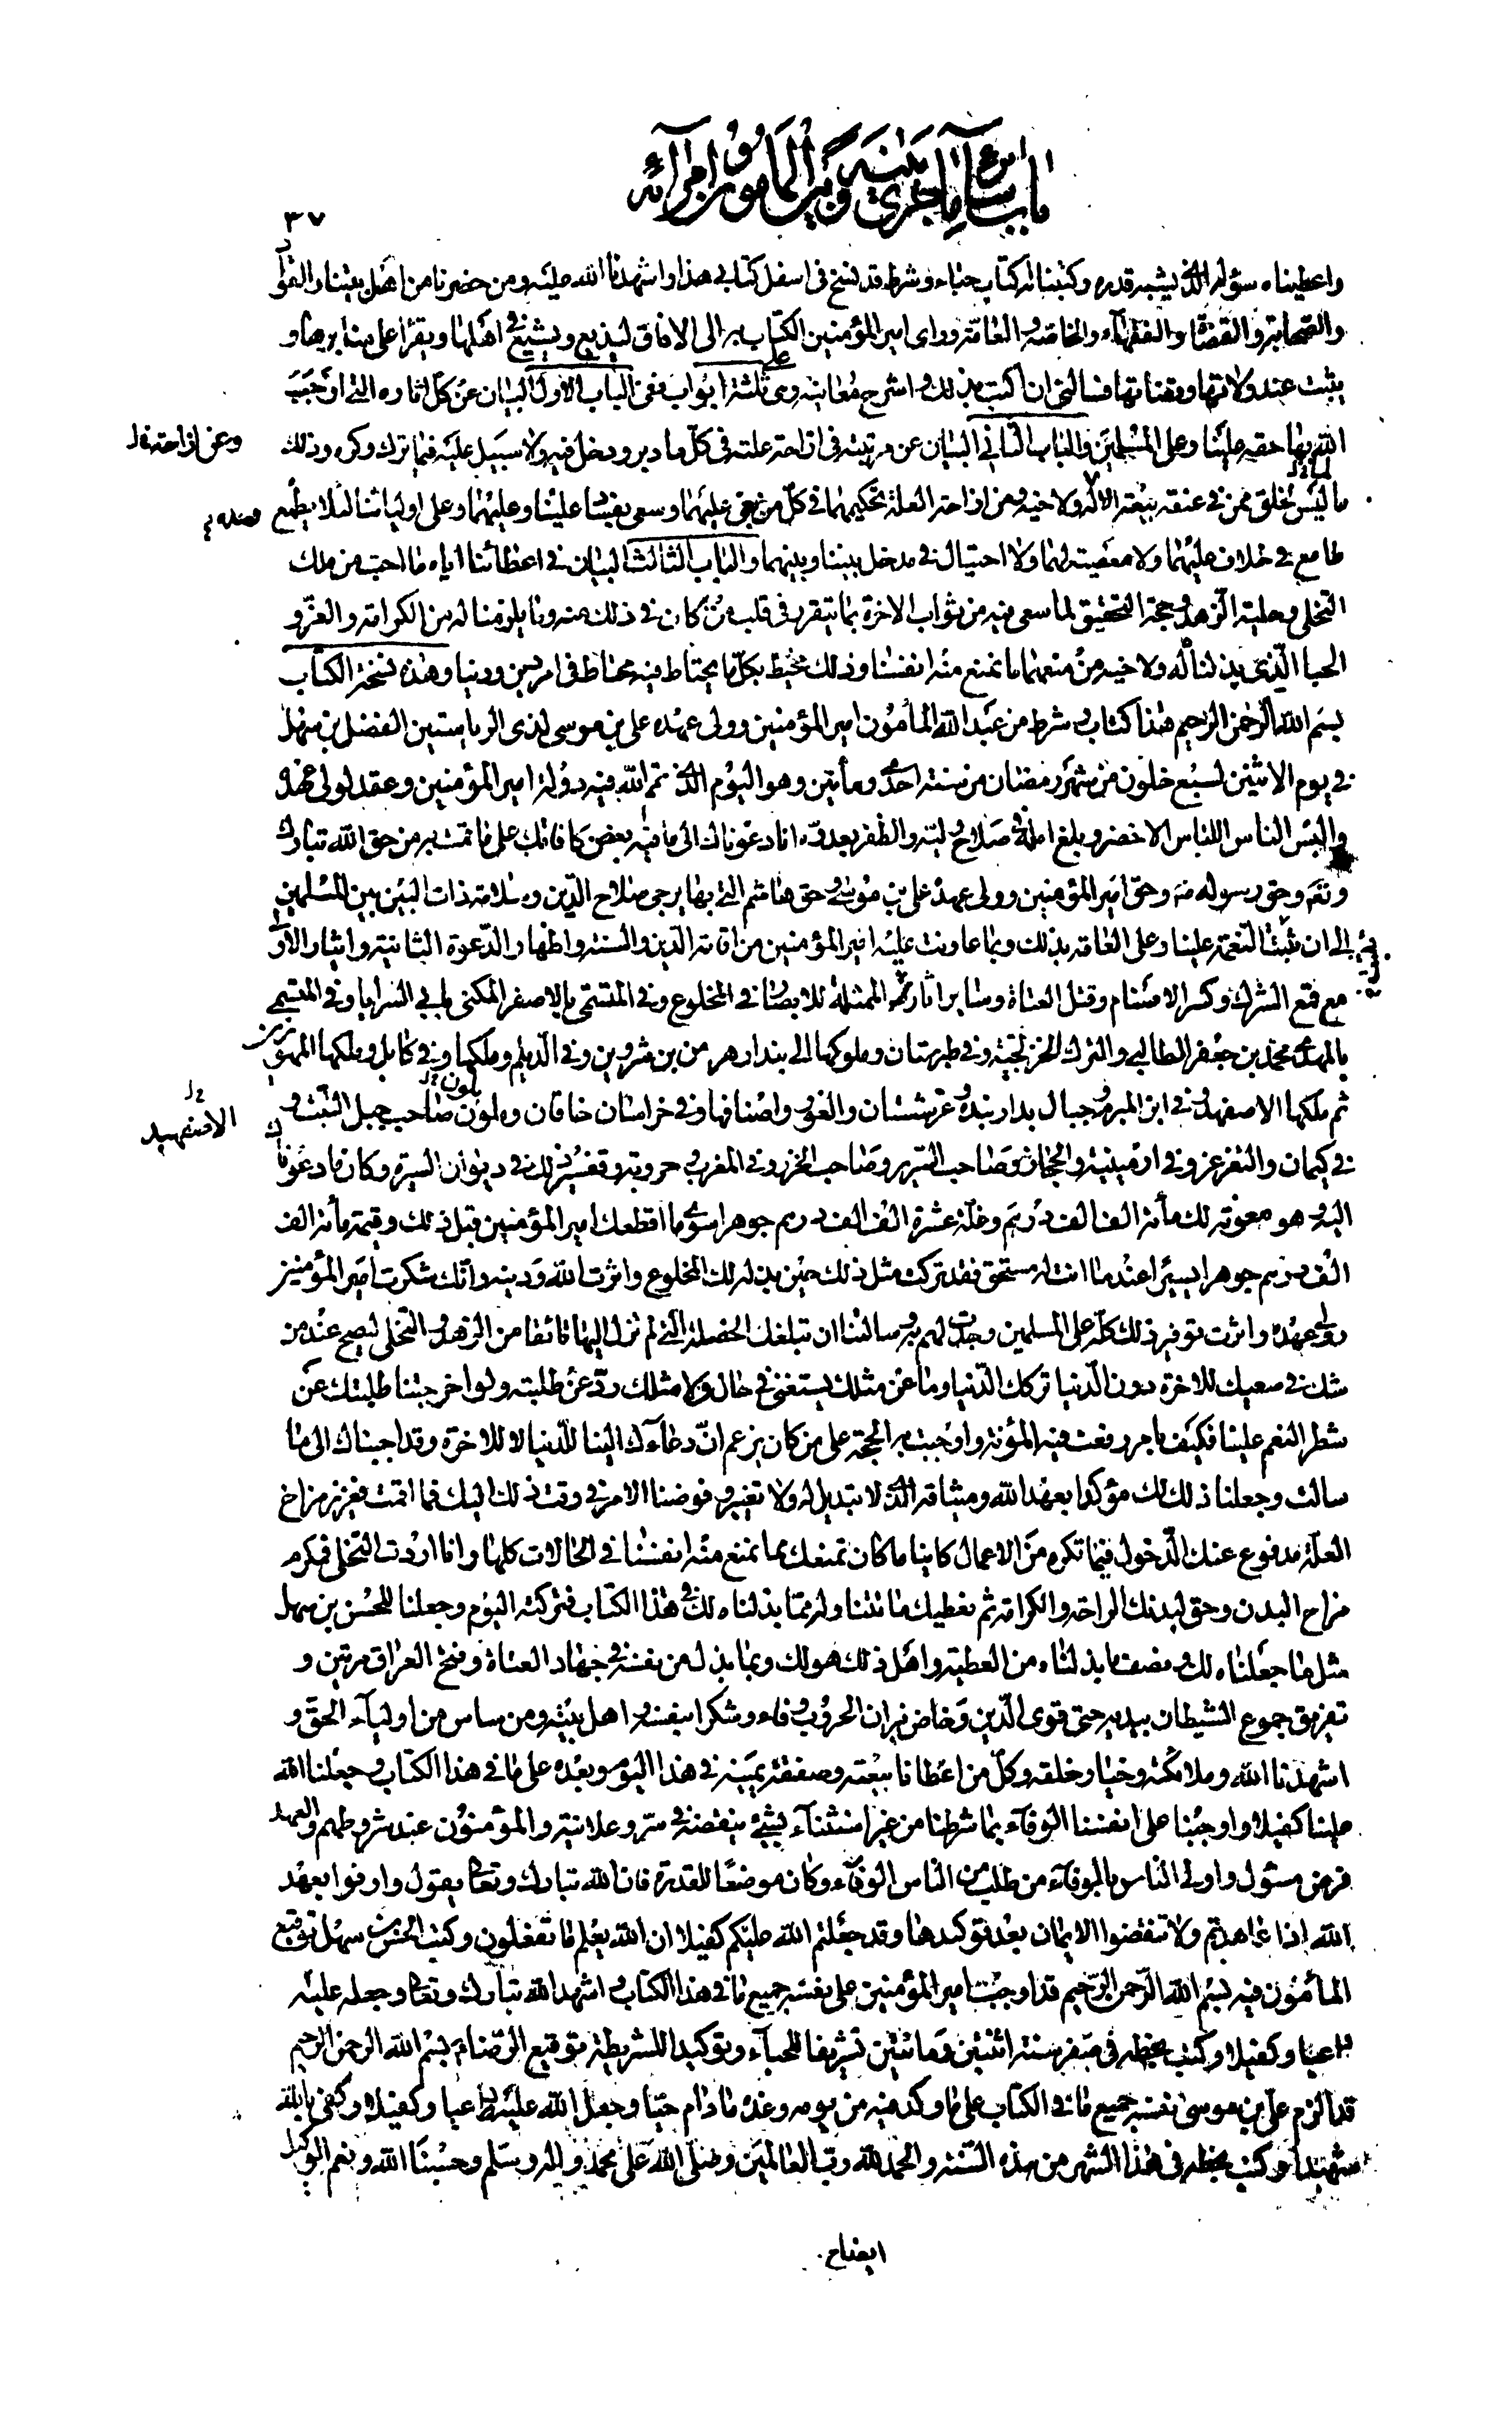 باب سائر ما جرى بينه وبين المأمون وامرآئه
٣٧
واعطيناه سؤله الذي يشبه قدره وكتبنا له كتاب حباء وشرط قد نسخ في اسفل كتابي هذا واشهدنا الله عليه ومن حضرنا من اهل بيتنا والقوّاد
والصحابة والقضاة والفقهاء والخاصة والعامة وراى امير المؤمنين الكتاب به الى الافاق ليذيع ويشيع في اهلها ويقرأ على منابرها و
يثبت عند ولاتها وقضاتها فسالني ان اكتب بذلك واشرح معانيه وهي على ثلثة ابواب ففي الباب الاول البيان عن كل اثاره التي اوجب
الله بها حقه علينا وعلى المسلمين والباب الثاني البيان عن مرتبته في ازاحة علته في كل ما دبر ودخل فيه ولا سبيل عليه فيما ترك وكره وذلك
وعن ازاحة خ ل
ما ليس لخلق ممن في عنقه بيعة الا له ولاخيه ومن ازاحة العلة تحكيمهما في كل من بغى عليهما وسعى بفساد علينا وعليهما وعلى اوليائنا لئلا يطمع
طامع في خلاف عليهما ولا معصية لهما ولا احتيال في مدخل بيننا وبينهما والباب الثالث البيان في اعطائنا اياه ما احب من ملك
التخلى وحلية الزهد وحجة التحقيق لما سعى فيه من ثواب الاخرة بما يتقرر في قلب من كان في ذلك منه وما يلزمنا له من الكرامة والعز و
الحبا الذي بذلناه له ولاخيه من منعهما ما نمنع منه انفسنا وذلك محيط بكل ما يحتاط فيه محتاط في امر دين ودنيا وهذه نسخة الكتاب
بسم الله الرحمن الرحيم هذا كتاب وشرط من عبد الله المأمون امير المؤمنين وولي عهده علي بن موسى لذي الرياستين الفضل بن سهل
في يوم الاثنين لسبع خلون من شهر رمضان من سنة احدى ومأتين وهو اليوم الذي تمم الله فيه دولة امير المؤمنين وعقد لولي عهده
والبس الناس اللباس الاخضر وبلغ امله في صلاح وليه والظفر بعدوّه انا دعوناك الى ما فيه بعض مكافاتك على ما قمت به من حق الله تبارك
وتعالى وحق رسوله ص وحق امير المؤمنين وولي عهده علي بن موسى وحق هاشم التي بها يرجى صلاح الدين وسلامة ذات البين بين المسلمين
الى ان ثبت النعمة علينا وعلى العامة بذلك وبما عاونت عليه امير المؤمنين من اقامة الدين والسنة واظهار الدعوة الثانية وايثار الاولى
مع قمع الشرك وكسر الاصنام وقتل العتاة وسائر اثارك الممثلة للابصار في المخلوع وفي المتسمى بالاصفر المكنى بابي السرايا وفي المتسمى
بالمهدي محمد بن جعفر الطالبي والترك الخزلجية وفي طبرستان وملوكها الى بندار هرمز بن شروين وفي الديلم وملكها وفي كابل وملكها المهوزين
ثم ملكها الاصفهبد وفي ابن المبرم وجبال بداربنده وغرشستان والغور واصنافها وفي خراسان خاقان وملون صاحب جبل التبت و
الاسفهبد خ ل
في كيمان والتغزغز وفي ارمينية والحجاز وصاحب السرير وصاحب الخزر وفي المغرب وحروبه وتفسير ذلك في ديوان السيرة وكان ما دعوناك
اليه وهو معونة لك مأة الف الف درهم وغلة عشرة الف الف درهم جوهرا سوى ما اقطعك امير المؤمنين قبل ذلك وقيمة مأة الف
الف درهم جوهرا يسيرا عندما انت له مستحق فقد تركت مثل ذلك حين بذله لك المخلوع واثرت الله ودينه وانك شكرت امير المؤمنين
وولي عهده واثرت توفير ذلك كله على المسلمين وجدت لهم به وسالتنا ان نبلغك الخصلة التي لم تزل اليها تائقا من الزهد والتخلى ليصح عند من
شك في سعيك للاخرة دون الدنيا تركك الدنيا وما عن مثلك يستغنى في حال ولا مثلك ردّ عن طلبته ولو اخرجتنا طلبتك عن
شطر النعم علينا فكيف بامر رفعت فيه المؤنة واوجبت به الحجة على من كان يزعم ان دعاءك الينا للدنيا لا للاخرة وقد اجبناك الى ما
سالت وجعلنا ذلك لك مؤكدا بعهد الله وميثاقه الذي لا تبديل له ولا تغيير وفوضنا الامر في وقت ذلك اليك فما اقمت فعزيز مزاح
العلة مدفوع عنك الدخول فيما تكره من الاعمال كاينا ما كان نمنعك مما نمنع منه انفسنا في الحالات كلها واذا اردت التخلى فمكرم
مزاح البدن وحق لبدنك الراحة والكرامة ثم نعطيك ما نتناوله مما بذلناه لك في هذا الكتاب فتركته اليوم وجعلنا للحسن بن سهل
مثل ما جعلناه لك ونصف ما بذلناه من العطية واهل ذلك هو لك وبما بذل من نفسه في جهاد العتاة وفتح العراق مرتين و
تفريق جموع الشيطان بيديه حتى قوى الدين وخاض نيران الحروب وفاء وشكرا بنفسه واهل بيته ومن ساس من اولياء الحق و
اشهدنا الله وملائكته وخيار خلقه وكل من اعطانا بيعته وصفقة يمينه في هذا اليوم وبعده على ما في هذا الكتاب وجعلنا الله
علينا كفيلا واوجبنا على انفسنا الوفاء بما شرطنا من غير استثناء بشيء ينقضه في سر وعلانية والمؤمنون عند شروطهم والعهد
فرض مسئول واولى الناس بالوفاء من طلب من الناس الوفاء وكان موضعا للقدرة فان الله تبارك وتعالى يقول واوفوا بعهد
الله اذا عاهدتم ولا تنقضوا الايمان بعد توكيدها وقد جعلتم الله عليكم كفيلا ان الله يعلم ما تفعلون وكتب الحسن بن سهل توقيع
المأمون فيه بسم الله الرحمن الرحيم قد اوجب امير المؤمنين على نفسه جميع ما في هذا الكتاب واشهد الله تبارك وتعالى وجعله عليه
داعيا وكفيلا وكتب بخطه في صفر سنة اثنتين ومائتين تشريفا للحباء وتوكيدا للشريطة توقيع الرضا ع بسم الله الرحمن الرحيم
قد الزم علي بن موسى نفسه جميع ما في الكتاب على ما وكد فيه من يومه وغده ما دام حيا وجعل الله عليه داعيا وكفيلا وكفى بالله
شهيدا وكتب بخطه في هذا الشهر من هذه السنة والحمد لله رب العالمين وصلى الله على محمد واله وسلم وحسبنا الله ونعم الوكيل
ايضاح